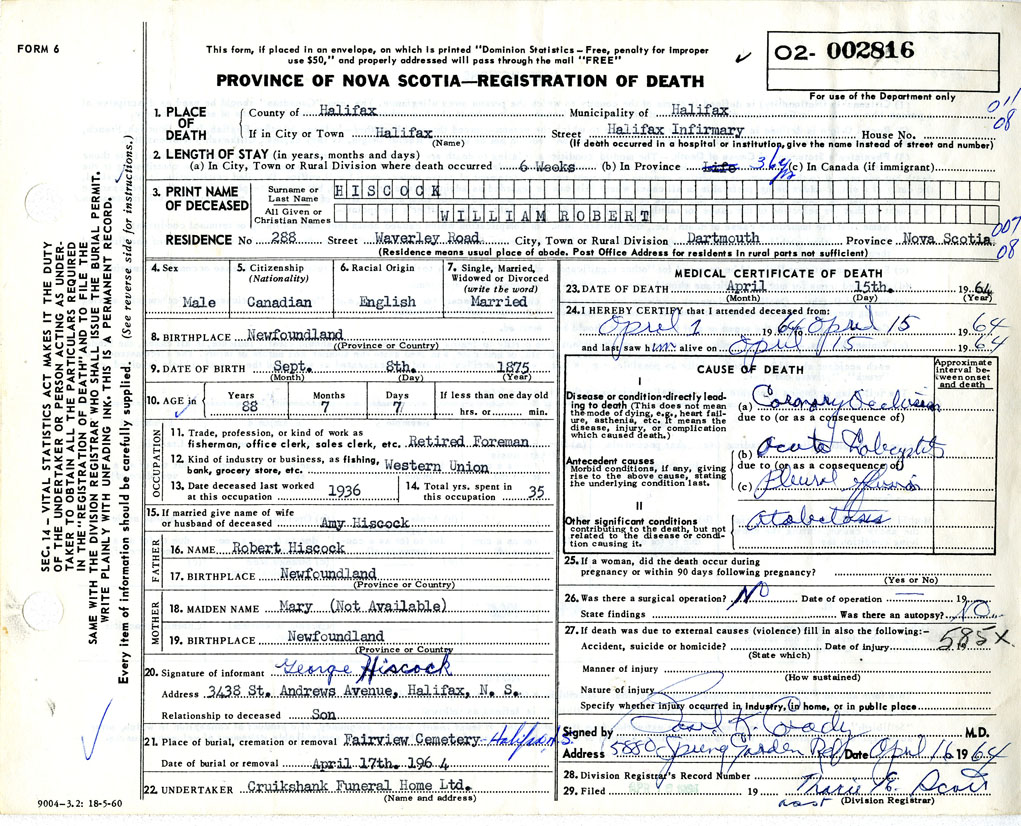 FORM 6
This form, if placed in an envelope, on which is printed "Dominion Statistics — Free, penalty for improper
use $50," and properly addressed will pass through the mail "FREE"
O2- 002816
PROVINCE OF NOVA SCOTIA—REGISTRATION OF DEATH
For use of the Department only
011
08
1. PLACE OF DEATH
County of Halifax Municipality of Halifax
If in City or Town Halifax Street Halifax Infirmary House No.
(Name) (If death occurred in a hospital or institution, give the name instead of street and number)
2. LENGTH OF STAY (in years, months and days)
(a) In City, Town or Rural Division where death occurred 6 Weeks (b) In Province Life 36 (c) In Canada (if immigrant)
3. PRINT NAME OF DECEASED
Surname or Last Name HISCOCK
All Given or Christian Names WILLIAM ROBERT
007
08
RESIDENCE No 288 Street Waverley Road City, Town or Rural Division Dartmouth Province Nova Scotia
(Residence means usual place of abode. Post Office Address for residents in rural parts not sufficient)
4. Sex Male
5. Citizenship (Nationality) Canadian
6. Racial Origin English
7. Single, Married, Widowed or Divorced (write the word) Married
8. BIRTHPLACE Newfoundland
((Province or Country)
9. DATE OF BIRTH Sept. 8th. 1875
(Month) (Day) (Year)
10. AGE in Years 88 Months 7 Days 7 If less than one day old hrs. or min.
OCCUPATION
11. Trade, profession, or kind of work as
fisherman, office clerk, sales clerk, etc. Retired Foreman
12. Kind of industry or business, as fishing,
bank, grocery store, etc. Western Union
13. Date deceased last worked at this occupation 1936
14. Total yrs. spent in this occupation 35
15. If married give name of wife
or husband of deceased Amy Hiscock
FATHER
16. NAME Robert Hiscock
17. BIRTHPLACE Newfoundland
(Province or Country)
MOTHER
18. MAIDEN NAME Mary (Not Available)
19. BIRTHPLACE Newfoundland
(Province or Country)
20. Signature of informant George Hiscock
Address 3438 St. Andrews Avenue, Halifax, N. S.
Relationship to deceased Son
21. Place of burial, cremation or removal Fairview Cemetery - Halifax N.S.
Date of burial or removal April 17th. 1964
22. UNDERTAKER Cruikshank Funeral Home Ltd.
(Name and address)
MEDICAL CERTIFICATE OF DEATH
23. DATE OF DEATH April 15th. 1964
(Month) (Day) (Year)
24. I HEREBY CERTIFY that I attended deceased from:
April 1 1964 to April 15 1964
and last saw him alive on April 15 1964
CAUSE OF DEATH
Approximate interval between onset and death
I
Disease or condition directly leading to death (This does not mean the mode of dying, e.g., heart failure, asthenia, etc. It means the disease, injury, or complication which caused death.)
(a) Coronary Occlusion
due to (or as a consequence of)
Antecedent causes
Morbid conditions, if any, giving rise to the above cause, stating the underlying condition last.
(b) Acute
due to (or as a consequence of)
(c) Pleural
II
Other significant conditions
contributing to the death, but not related to the disease or condition causing it.
25. If a woman, did the death occur during
pregnancy or within 90 days following pregnancy?
(Yes or No)
26. Was there a surgical operation? NO Date of operation — 19
State findings Was there an autopsy? NO
27. If death was due to external causes (violence) fill in also the following:–
585X
Accident, suicide or homicide? Date of injury 19
(State which)
Manner of injury
(How sustained)
Nature of injury
Specify whether injury occurred in industry, in home, or in public place
Signed by M.D.
Address 5880 Spring Garden Rd Date April 16 1964
28. Division Registrar's Record Number
29. Filed 19 Marie E. Scott
(Division Registrar)
SEC. 14 – VITAL STATISTICS ACT MAKES IT THE DUTY
OF THE UNDERTAKER OR PERSON ACTING AS UNDER-
TAKER TO OBTAIN ALL THE PARTICULARS REQUIRED
IN THE "REGISTRATION OF DEATH" AND TO FILE THE
SAME WITH THE DIVISION REGISTRAR WHO SHALL ISSUE THE BURIAL PERMIT.
WRITE PLAINLY WITH UNFADING INK. THIS IS A PERMANENT RECORD.
Every item of information should be carefully supplied. (See reverse side for instructions.)
9004–3.2: 18-5-60